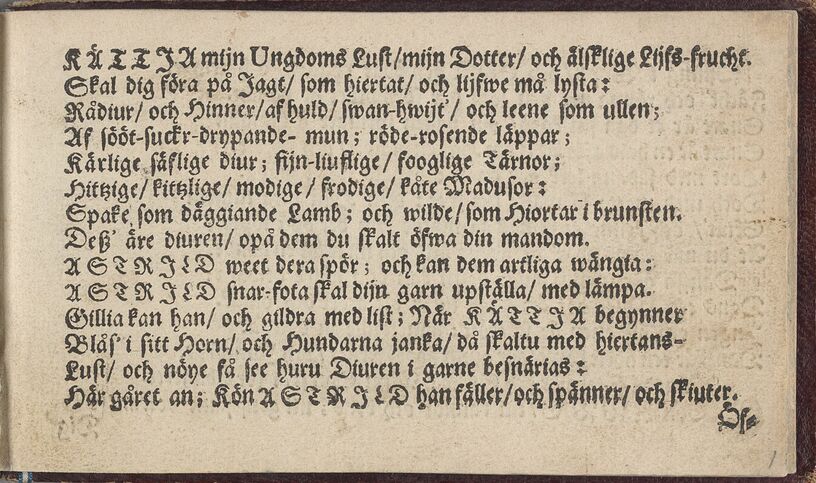 KÄTTJA mijn Ungdoms Lust/ mijn Dotter/ och älsklige Lijfs-frucht.
Skal dig föra på Jagt/ som hiertat/ och lijfwe må lysta:
Rådiur/ och Hinner/ af huld/ swan-hwijt'/ och leene som ullen;
Af sööt-suckr-drypande- mun; röde-rosende läppar;
Kärlige säflige diur; fijn-liuflige/ fooglige Tärnor;
Hittzige/ kittzlige/ modige/ frodige/ kåte Madusor:
Spake som däggiande Lamb; och wilde/ som Hiortar i brunsten.
Deß' äre diuren/ opå dem du skalt öfwa din mandom.
ASTRILD weet dera spör; och kan dem artliga wängta:
ASTRILD snar-fota skal dijn garn upställa/ med lämpa.
Gillia kan han/ och gildra med list; När KÄTTJA begynner
Blås' i sitt Horn/ och Hundarna janka/ då skaltu med hiertans-
Lust/ och nöye få see huru Diuren i garne besnärias:
Här gåret an; Kön ASTRILD han fäller/ och spänner/ och skiuter.
Öf-
1